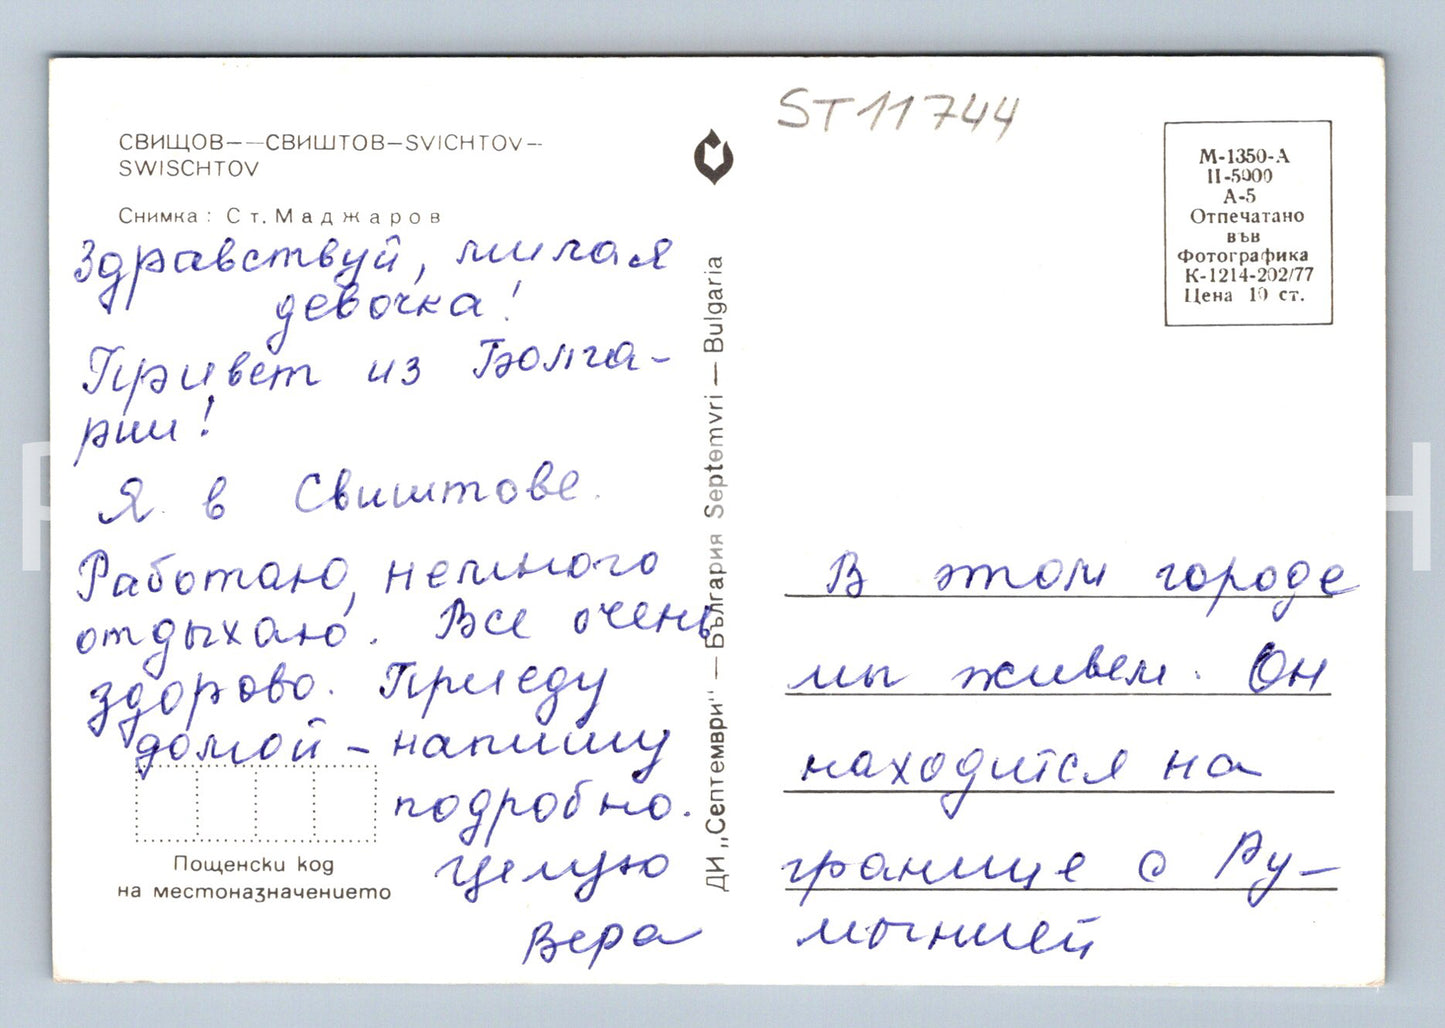 СВИЩОВ——СВИШТОВ—SVICHTOV—
SWISCHTOV
Снимка: Ст. Маджаров
Здравствуй, милая
девочка!
Привет из Болга-
рии!
Я в Свиштове.
Работаю, немного
отдыхаю. Все очень
здорово. Приеду
домой – напишу
подробно.
Целую
Вера
Пощенски код
на местоназначението
ДИ „Септември" — България Septemvri — Bulgaria
ST 11744
М-1350-А
II-5900
А-5
Отпечатано
във
Фотографика
К-1214-202/77
Цена 10 ст.
В этом городе
мы живем. Он
находится на
границе с Ру-
мынией